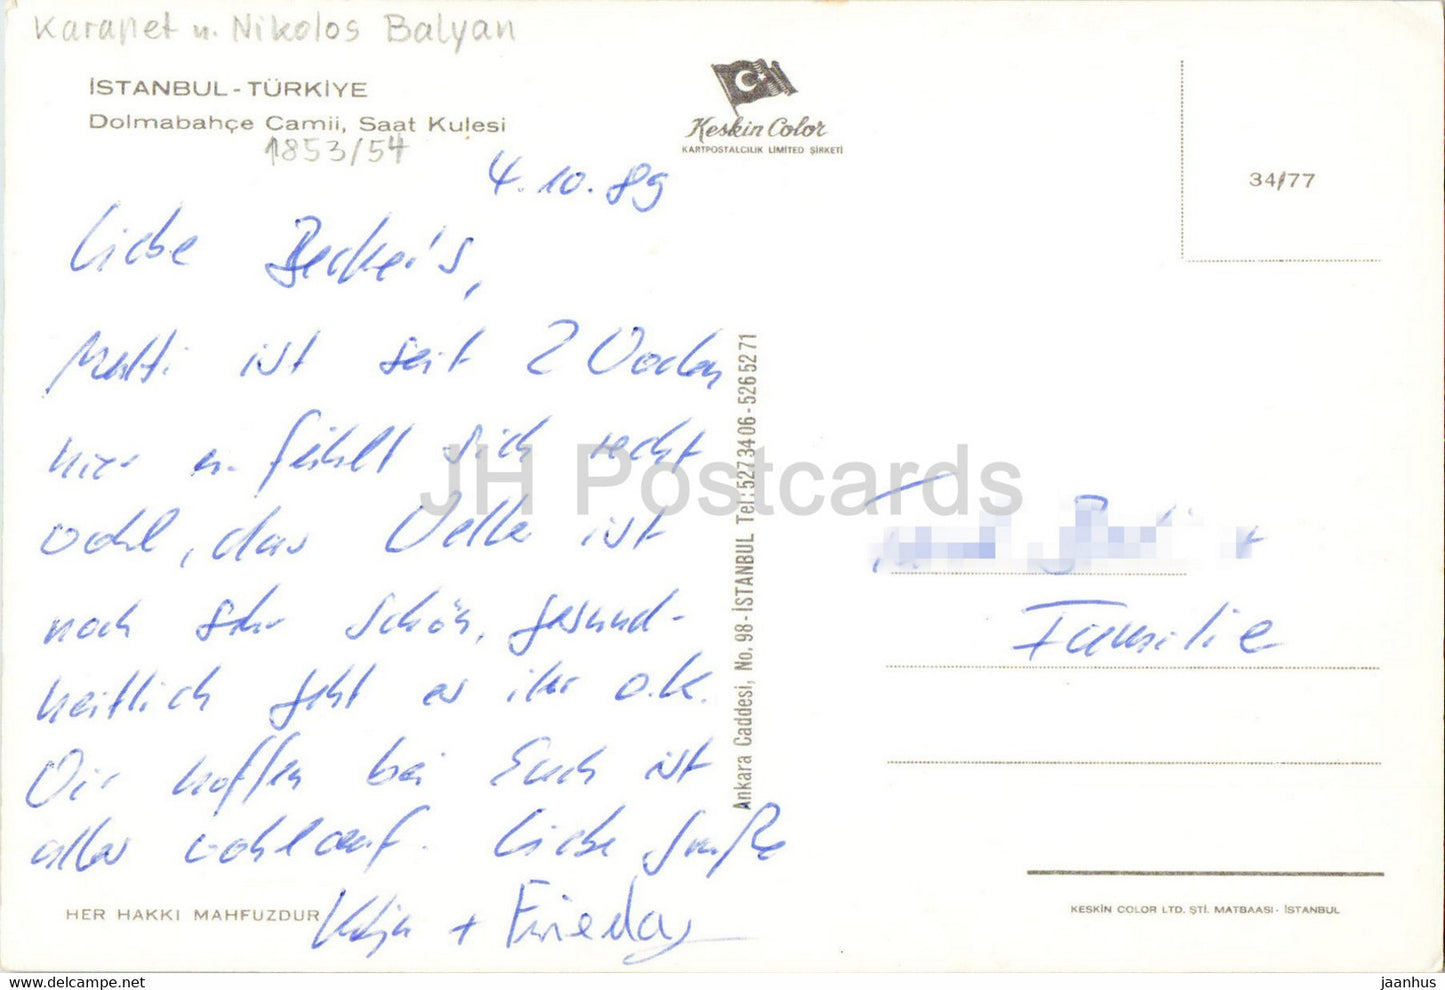 Karapet u. Nikolos Balyan
İSTANBUL - TÜRKİYE
Dolmabahçe Camii, Saat Kulesi
1853/54
Keskin Color
KARTPOSTALCILIK LIMITED ŞİRKETİ
34/77
4.10.89
Liebe Becker's,
Matti ist seit 2 Wochen
hier u. fühlt sich recht
wohl, das Wetter ist
noch sehr schön, gesund-
heitlich geht es ihr o.k.
Wir hoffen bei Euch ist
alles wohlauf. Liebe Grüße
+ Frieda
HER HAKKI MAHFUZDUR
Ankara Caddesi, No. 98 - İSTANBUL Tel: 5273406 - 5265271
Familie
KESKİN COLOR LTD. ŞTİ. MATBAASI - İSTANBUL
JH Postcards
www.delcampe.net
jaanhus